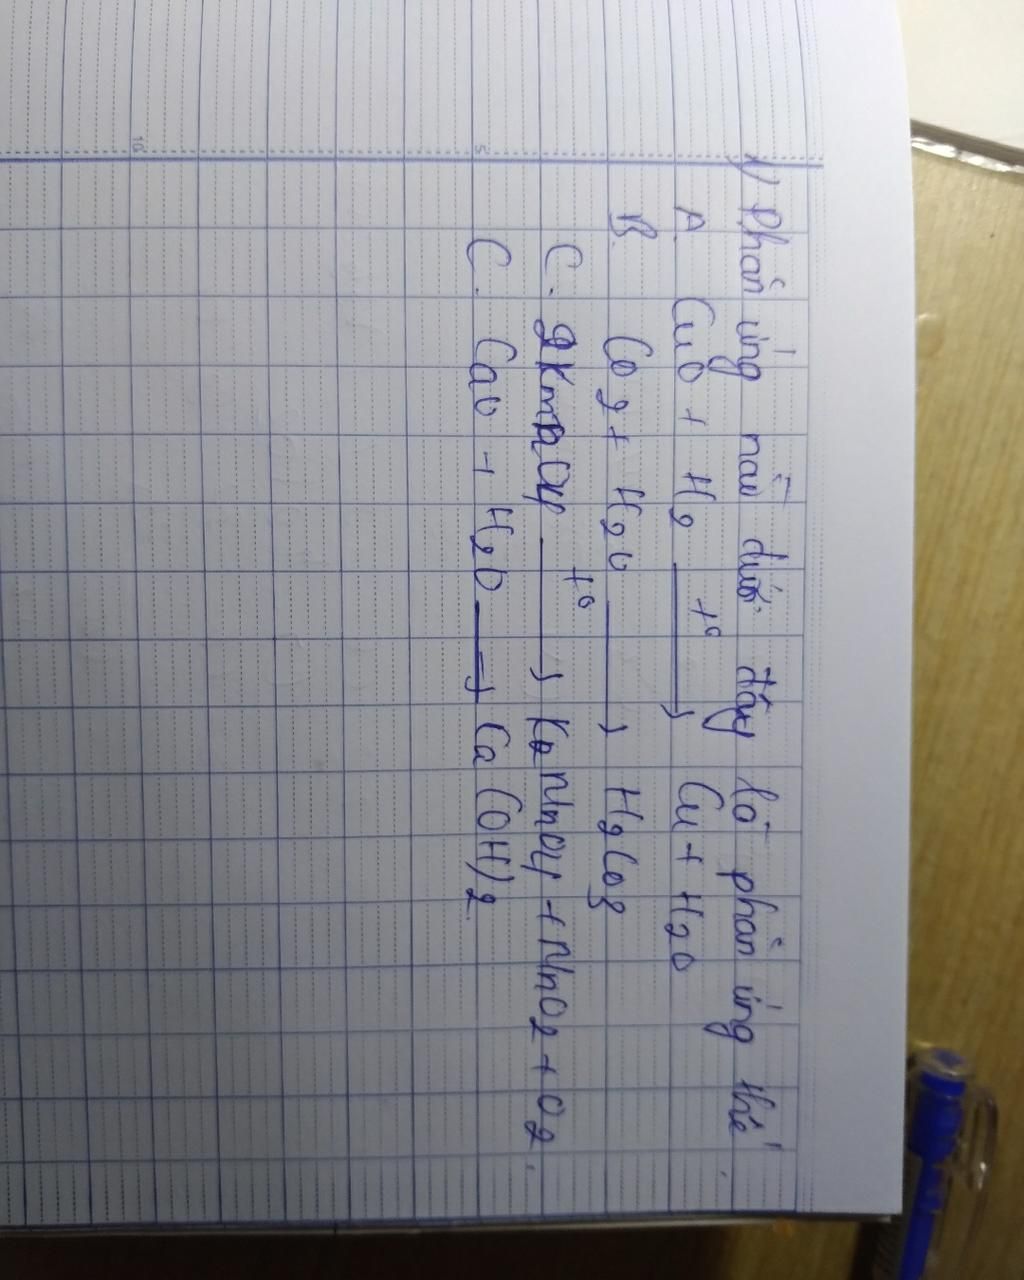 1) Phản ứng nào dưới đây là phản ứng thế
A. CuO + H2 t° → Cu + H2O
B. CO2 + H2O → H2CO3
C. 2KMnO4 t° → K2MnO4 + MnO2 + O2.
C. CaO + H2O → Ca(OH)2.
5
10